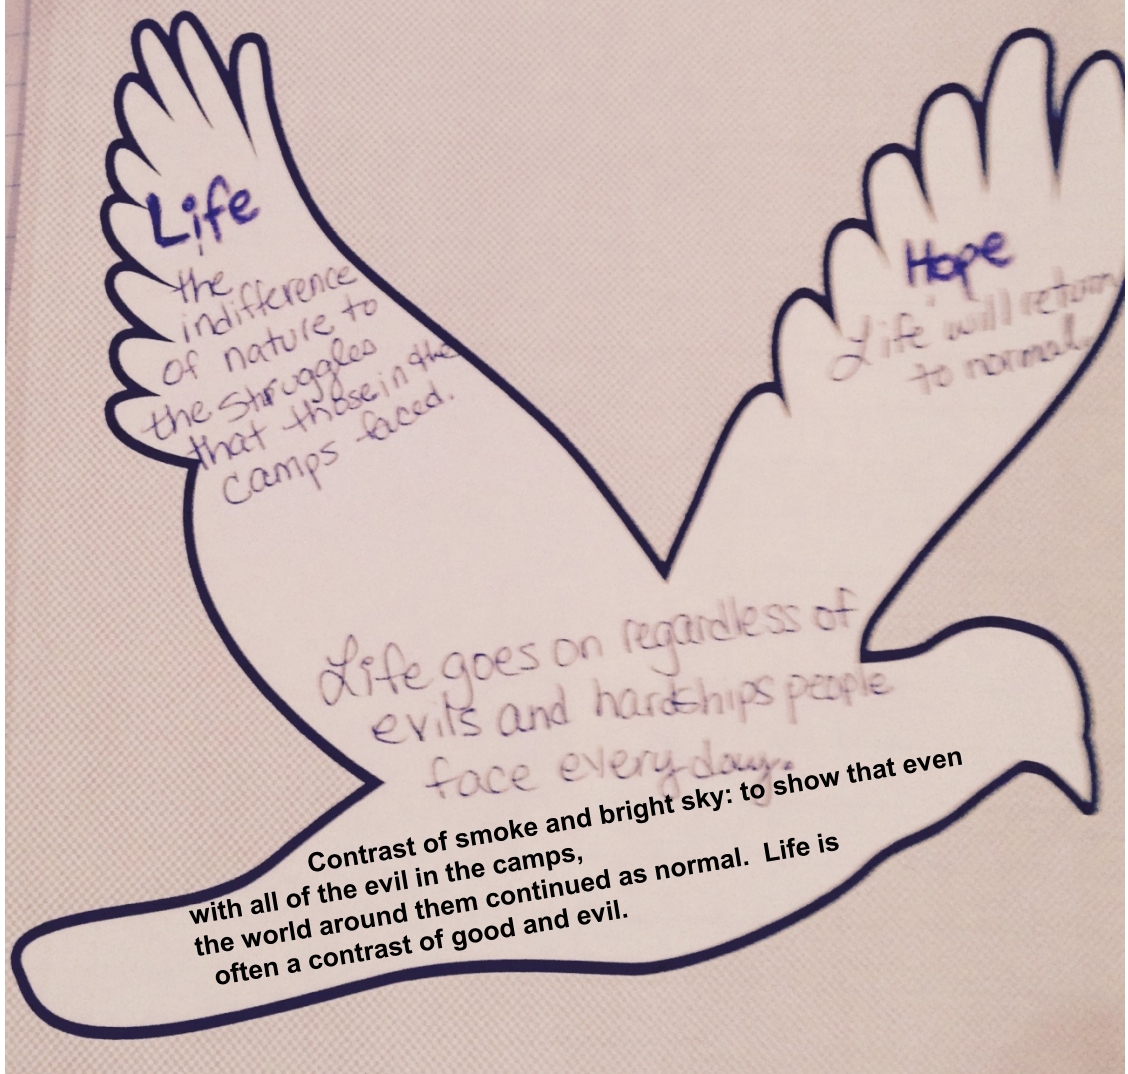 Life
the
indifference
of nature to
the struggles
that those in the
camps faced.
Hope
Life will return
to normal.
Life goes on regardless of
evils and hardships people
face everyday.
Contrast of smoke and bright sky: to show that even
with all of the evil in the camps,
the world around them continued as normal.  Life is
often a contrast of good and evil.